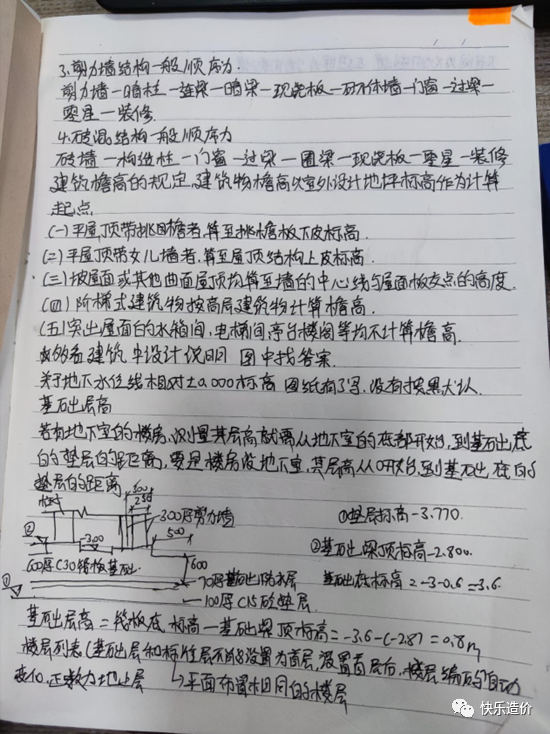 3.剪力墙结构一般顺序为.
剪力墙一暗柱一连梁一暗梁一现浇板一砌体墙一门窗一过梁一
零星一装修.
4.砖混结构一般顺序为
砖墙一构造柱一门窗一过梁一圈梁一现浇板一零星一装修
建筑檐高的规定.建筑物檐高以室外设计地坪标高作为计算
起点.
(一)平屋顶带挑檐者,算至挑檐板下皮标高.
(二)平屋顶带女儿墙者,算至屋顶结构上皮标高.
(三)坡屋面或其他曲面屋顶均算至墙的中心线与屋面板交点的高度.
(四)阶梯式建筑物按高层建筑物计算檐高.
(五)突出屋面的水箱间,电梯间,亭台楼阁等均不计算檐高.
建筑 设计说明 图中找答案.
关于地下水位线相对±0.000标高 图纸有了写.没有按默认.
基础层高
若有地下室的楼房,则量其层高就需从地下室的底部开始,到基础底
的垫层的距离,要是楼房没地下室,其层高从0开始,到基础底的
垫层的距离
600
250
300厚剪力墙
500
①垫层标高-3.770.
②基础梁顶标高-2.800.
600厚C30筏板基础.
600
70厚基础防水层
基础底标高 2-3-0.6=3.6
100厚C15砼垫层.
基础层高=筏板底标高一基础梁顶标高=-3.6-(-2.8)=0.8m
楼层列表(基础层和标准层不能设置为首层,设置首层后,楼层编码自动
变化,正数为地上层
→平面布置相同的楼层
快乐造价